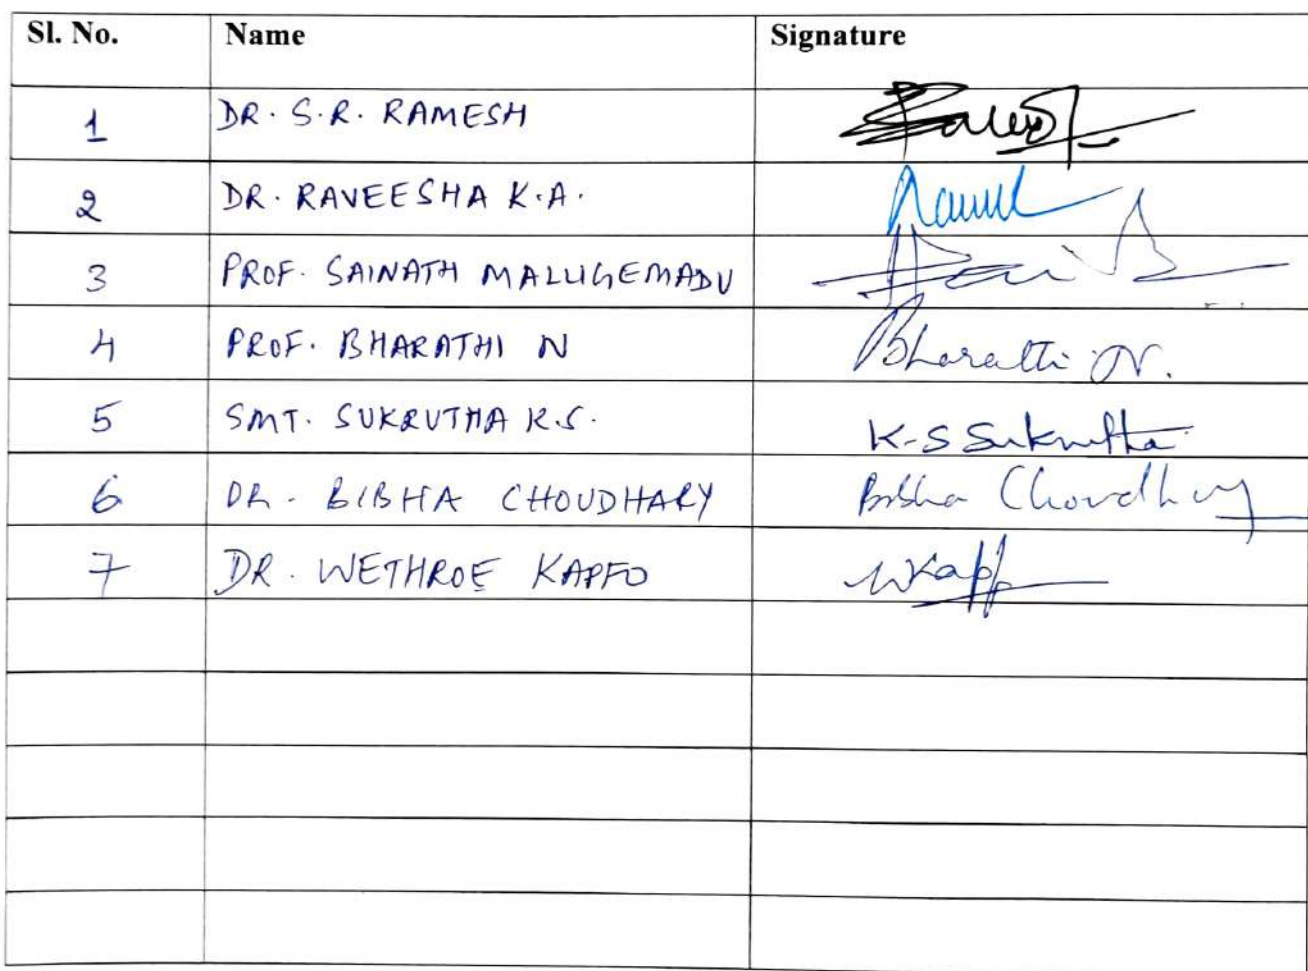 Sl. No. Name Signature
1 DR. S.R. RAMESH
2 DR. RAVEESHA K.A.
3 PROF. SAINATH MALUGEMADU
4 PROF. BHARATHI N Bharathi N.
5 SMT. SUKRUTHA K.S. K-S Sukrutha
6 DR. BIBHA CHOUDHARY Bibha Choudhary
7 DR. WETHROE KAPFO WKapf